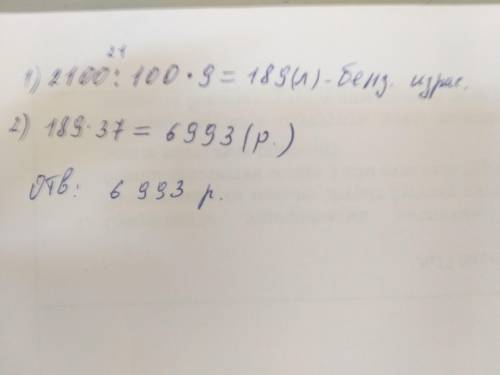 21
1) 2100 : 100 · 9 = 189(л) - бенз. израс.
2) 189 · 37 = 6993 (р.)
Отв: 6 993 р.